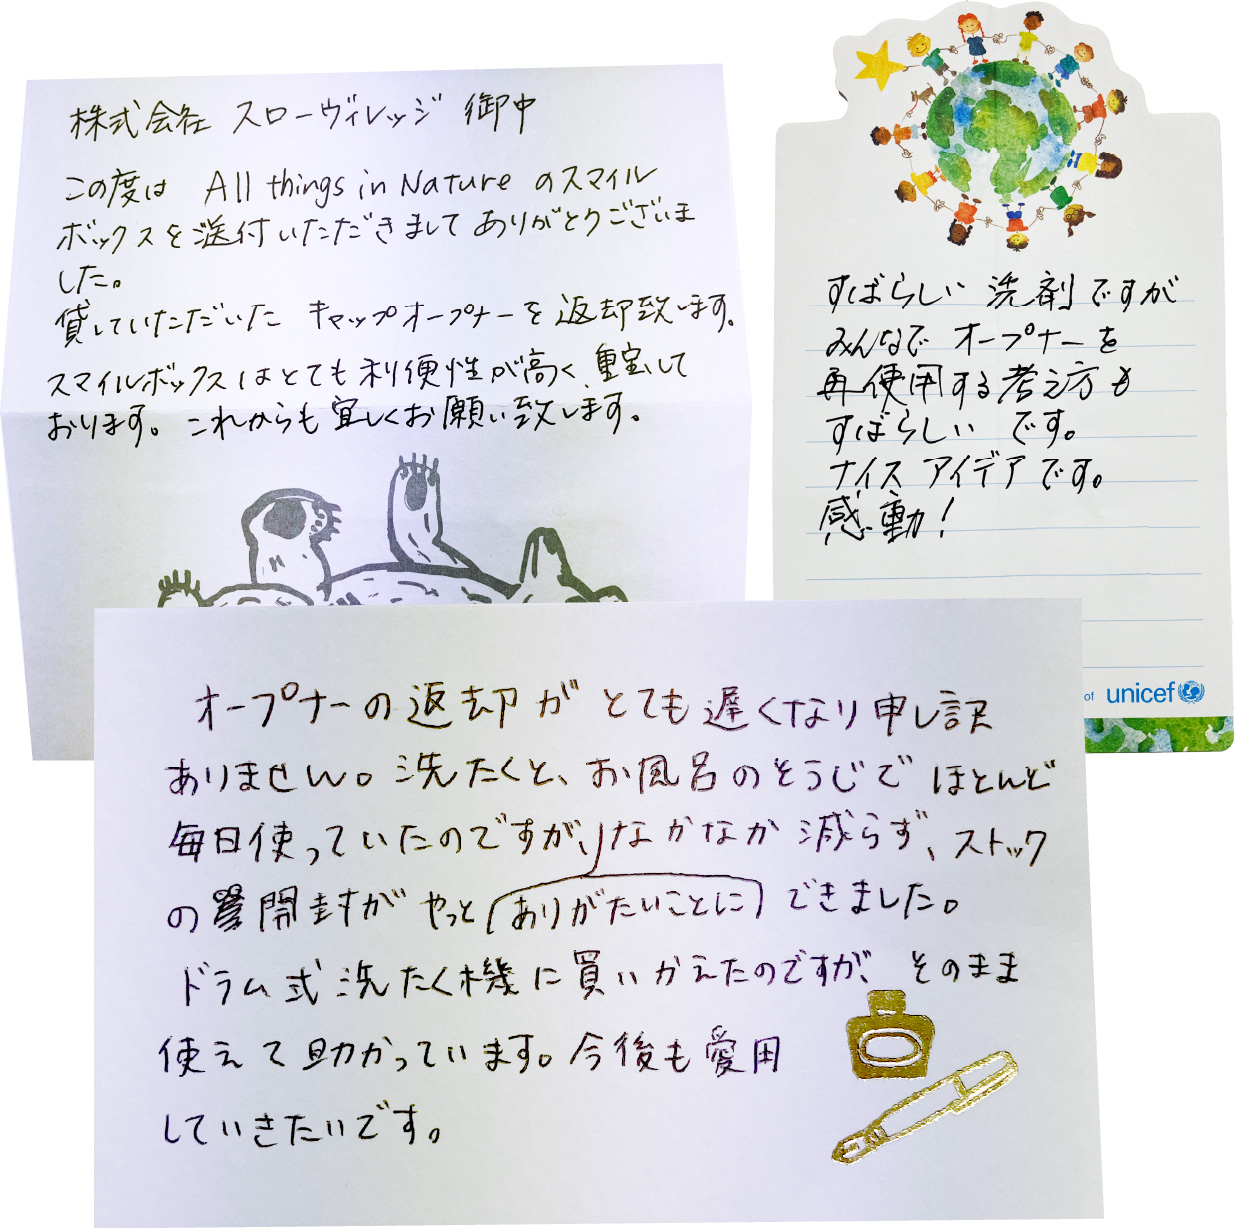 株式会社 スローヴィレッジ 御中
この度は All things in Nature のスマイル
ボックスを送付いただきましてありがとうございま
した。
貸していただいた キャップオープナーを返却致します。
スマイルボックスはとても利便性が高く、重宝して
おります。これからも宜しくお願い致します。
すばらしい 洗剤ですが
みんなで オープナーを
再使用する考え方も
すばらしい です。
ナイス アイデアです。
感動!
of unicef
オープナーの返却が とても遅くなり申し訳
ありません。洗たくと、お風呂のそうじで ほとんど
毎日使っていたのですが、なかなか減らず、ストック
の開封が やっと(ありがたいことに)できました。
ドラム式洗たく機に買いかえたのですが、そのまま
使えて助かっています。今後も愛用
していきたいです。